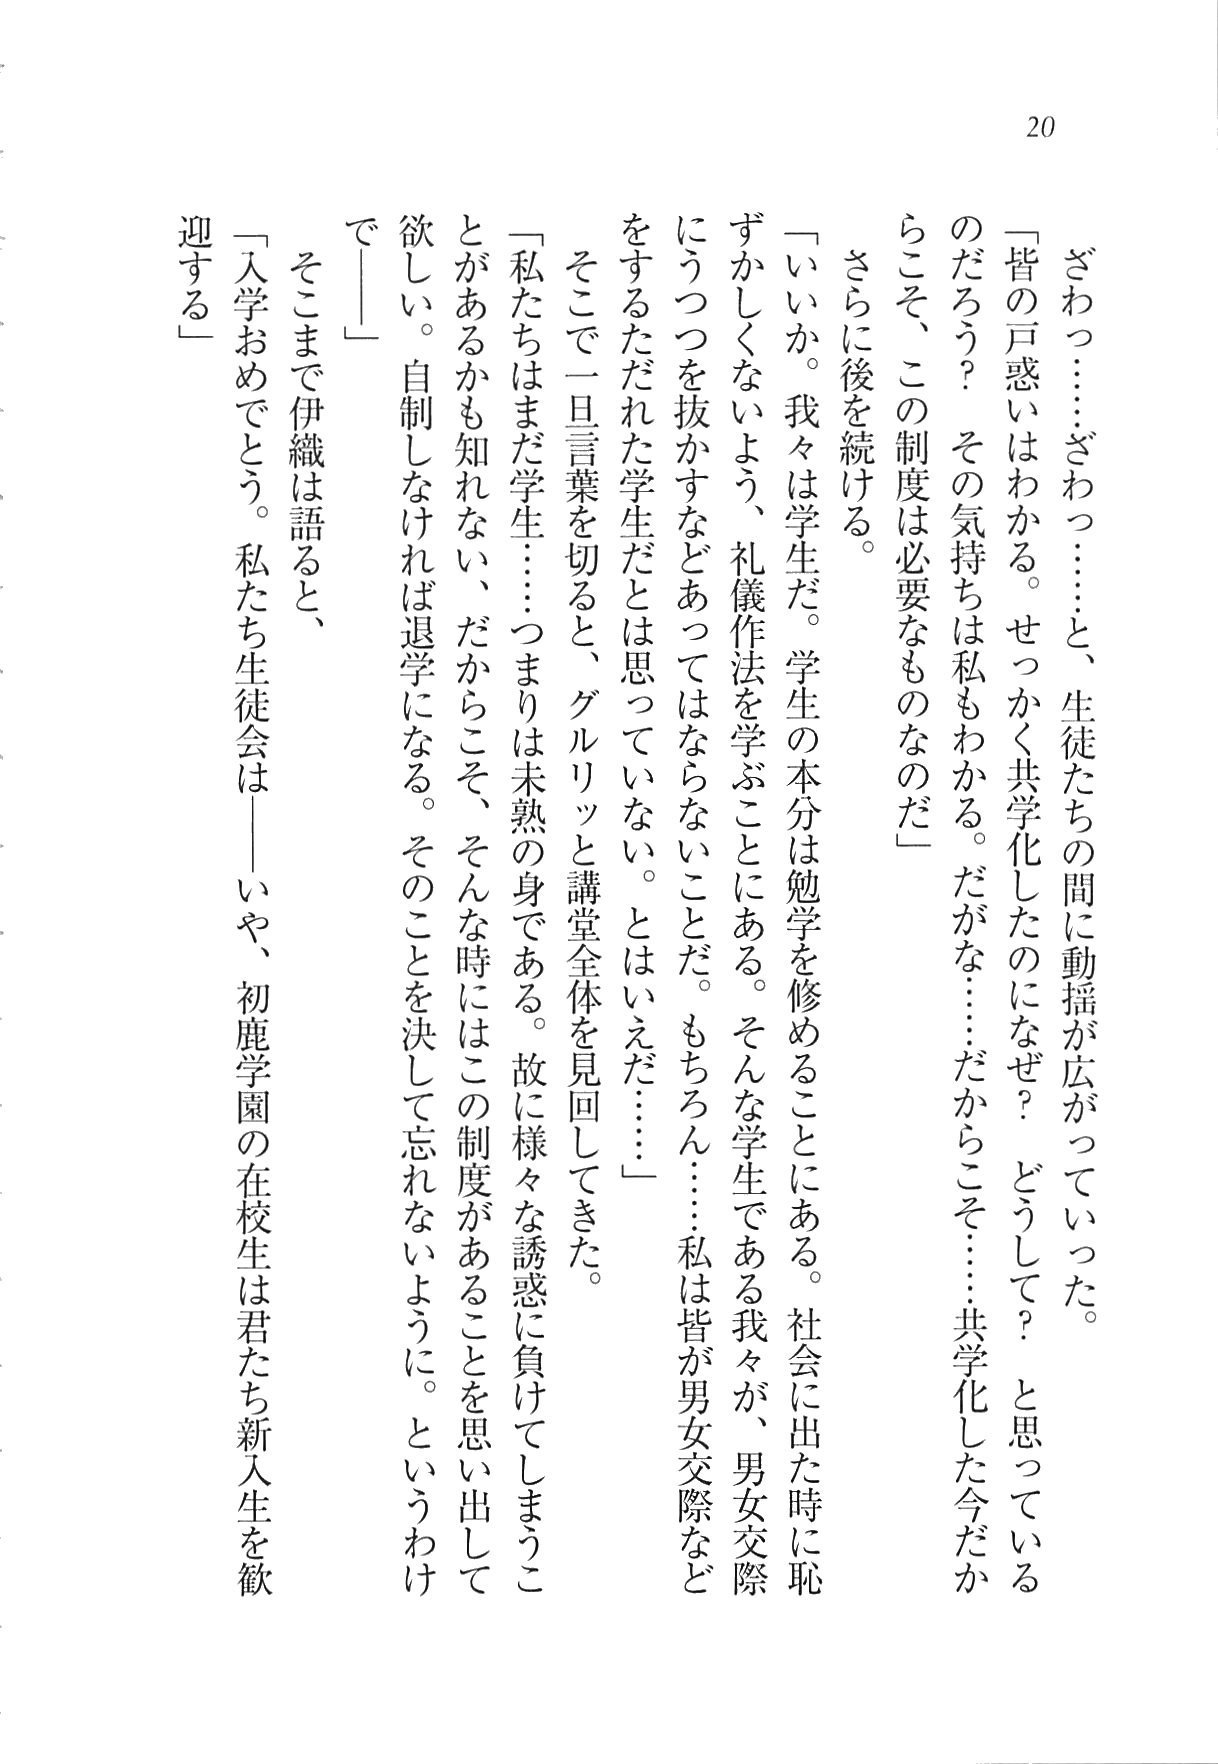 20
　ざわっ……ざわっ……と、生徒たちの間に動揺が広がっていった。
「皆の戸惑いはわかる。せっかく共学化したのになぜ？　どうして？　と思っている
のだろう？　その気持ちは私もわかる。だがな……だからこそ……共学化した今だか
らこそ、この制度は必要なものなのだ」
　さらに後を続ける。
「いいか。我々は学生だ。学生の本分は勉学を修めることにある。社会に出た時に恥
ずかしくないよう、礼儀作法を学ぶことにある。そんな学生である我々が、男女交際
にうつつを抜かすなどあってはならないことだ。もちろん……私は皆が男女交際など
をするただれた学生だとは思っていない。とはいえだ……」
　そこで一旦言葉を切ると、グルリッと講堂全体を見回してきた。
「私たちはまだ学生……つまりは未熟の身である。故に様々な誘惑に負けてしまうこ
とがあるかも知れない、だからこそ、そんな時にはこの制度があることを思い出して
欲しい。自制しなければ退学になる。そのことを決して忘れないように。というわけ
で――」
　そこまで伊織は語ると、
「入学おめでとう。私たち生徒会は――いや、初鹿学園の在校生は君たち新入生を歓
迎する」